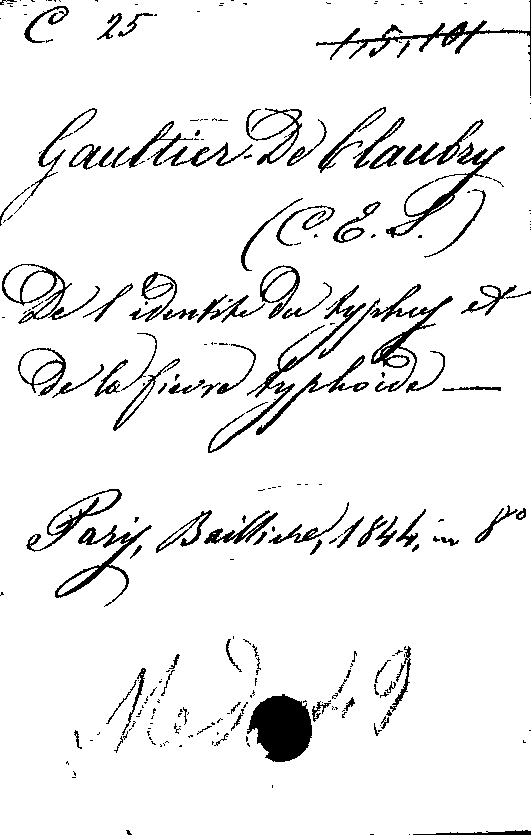 C 25
1,5,101
Gaultier-De Claubry
(C. E. S.)
De l'identité du typhus et
de la fievre typhoïde —
Paris, Baillière, 1844, in 8°